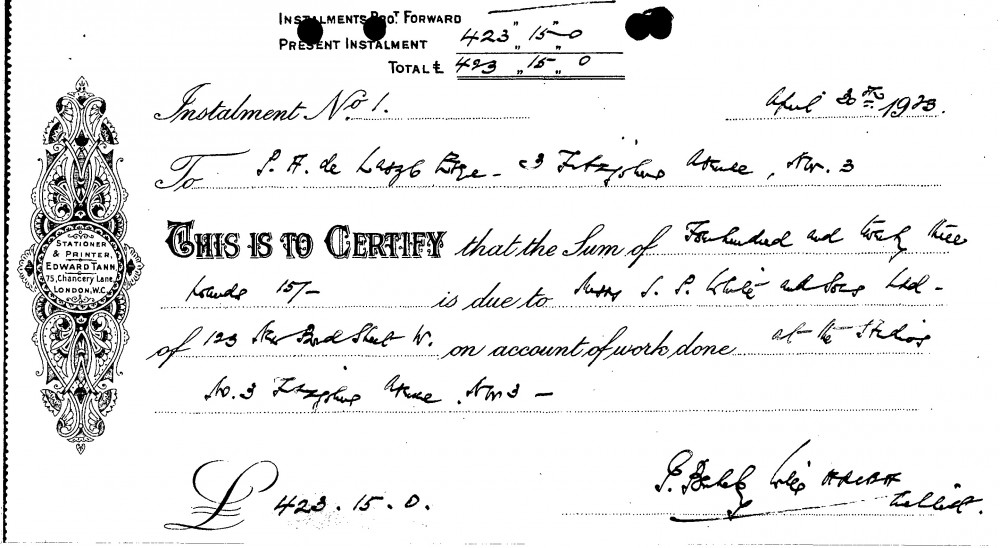 INSTALMENTS BROT FORWARD
PRESENT INSTALMENT 423 " 15 " 0
TOTAL £ 423 " 15 " 0
Instalment No 1. April 30th 1923.
To P. A. de Laszlo Esqe - 3 Fitzjohns Avenue, N.W. 3
THIS IS TO CERTIFY that the Sum of Four hundred and twenty three
pounds 15/- is due to Messrs White and Sons Ltd -
of 123 New Bond Street W. on account of work done at the Studios
No. 3 Fitzjohns Avenue N.W. 3 -
£ 423 . 15 . 0.
STATIONER
& PRINTER,
EDWARD TANN,
75, Chancery Lane
LONDON, W.C.